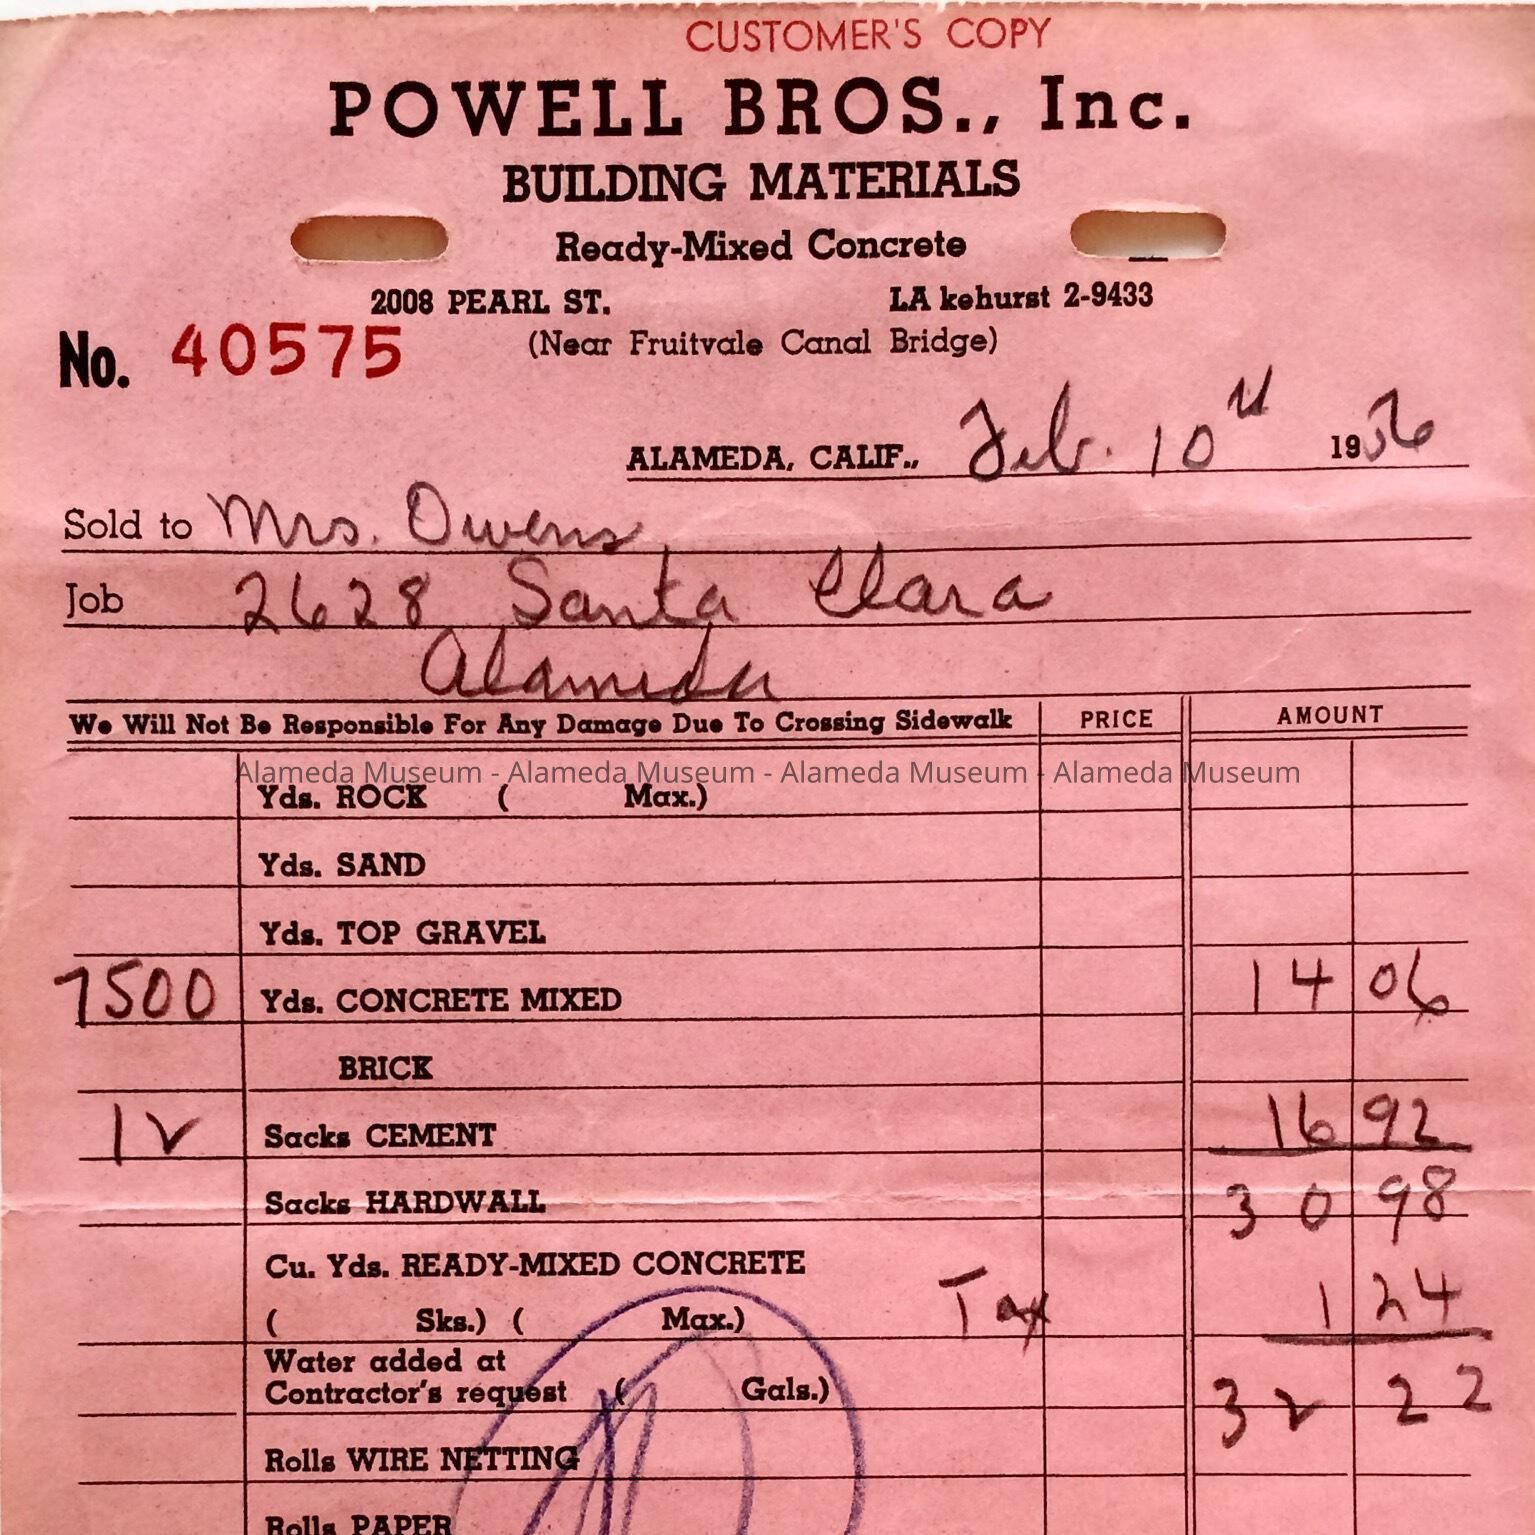 CUSTOMER'S COPY
POWELL BROS., Inc.
BUILDING MATERIALS
Ready-Mixed Concrete
2008 PEARL ST. LA kehurst 2-9433
(Near Fruitvale Canal Bridge)
No. 40575
ALAMEDA, CALIF., Feb. 10th 1956
Sold to Mrs. Owens
Job 2628 Santa Clara
Alameda
We Will Not Be Responsible For Any Damage Due To Crossing Sidewalk PRICE AMOUNT
Alameda Museum - Alameda Museum - Alameda Museum - Alameda Museum
Yds. ROCK ( Max.)
Yds. SAND
Yds. TOP GRAVEL
7500 Yds. CONCRETE MIXED 14 06
BRICK
12 Sacks CEMENT 16 92
Sacks HARDWALL 30 98
Cu. Yds. READY-MIXED CONCRETE
( Sks.) ( Max.) Tax 1 24
Water added at
Contractor's request ( Gals.) 32 22
Rolls WIRE NETTING
Rolls PAPER